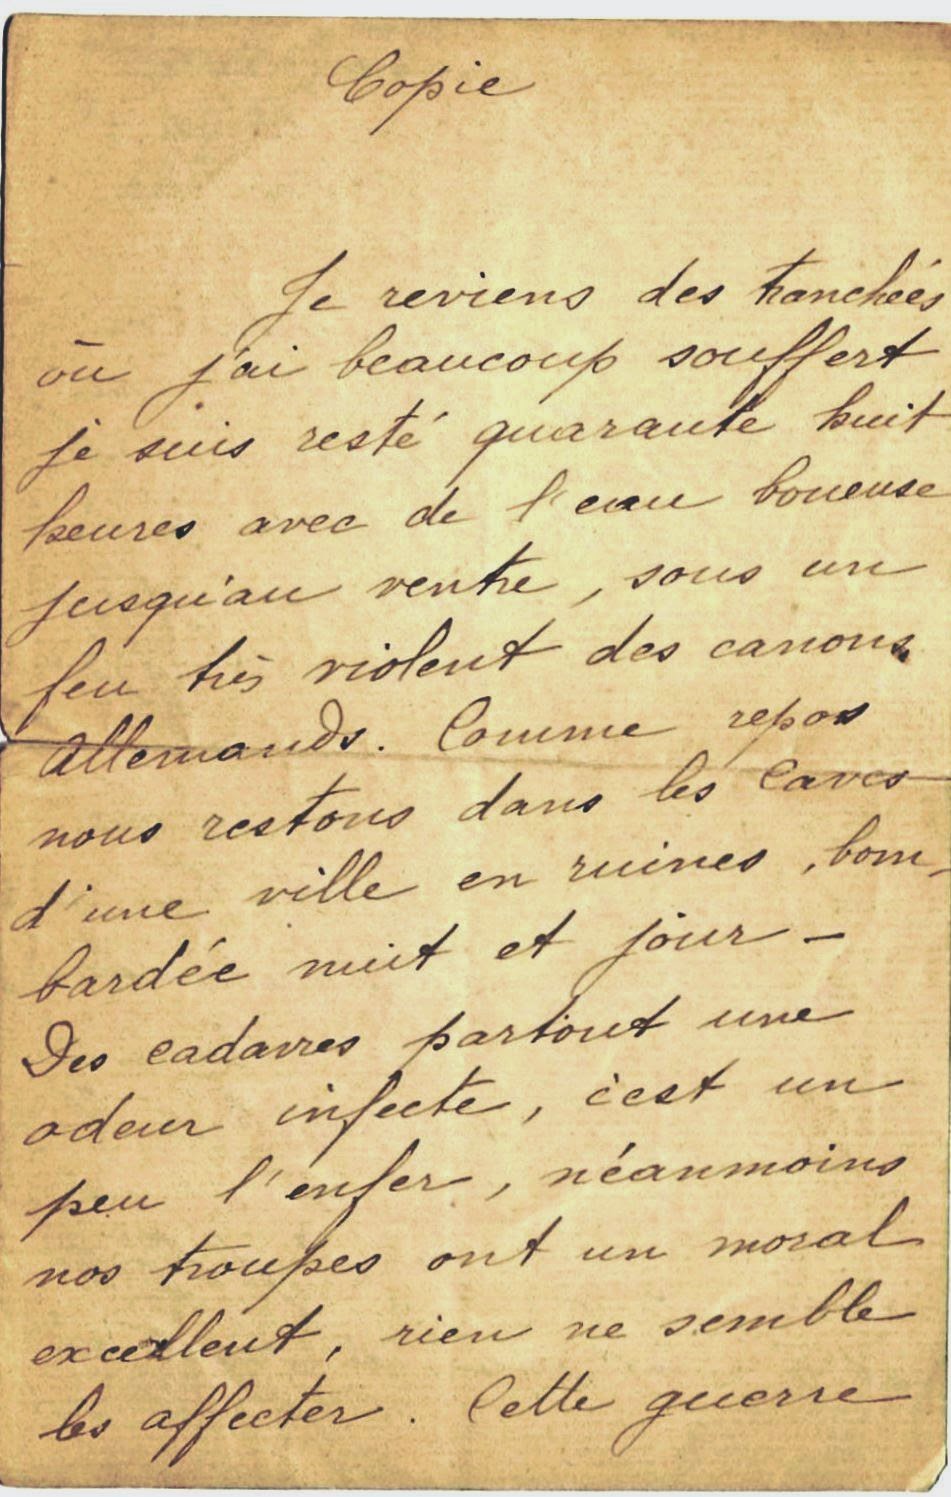 Copie
Je reviens des tranchées
où j'ai beaucoup souffert
je suis resté quarante huit
heures avec de l'eau boueuse
jusqu'au ventre, sous un
feu très violent des canons
Allemands. Comme repos
nous restons dans les caves
d'une ville en ruines, bom-
bardée nuit et jour -
Des cadavres partout une
odeur infecte, c'est un
peu l'enfer, néanmoins
nos troupes ont un moral
excellent, rien ne semble
les affecter. Cette guerre